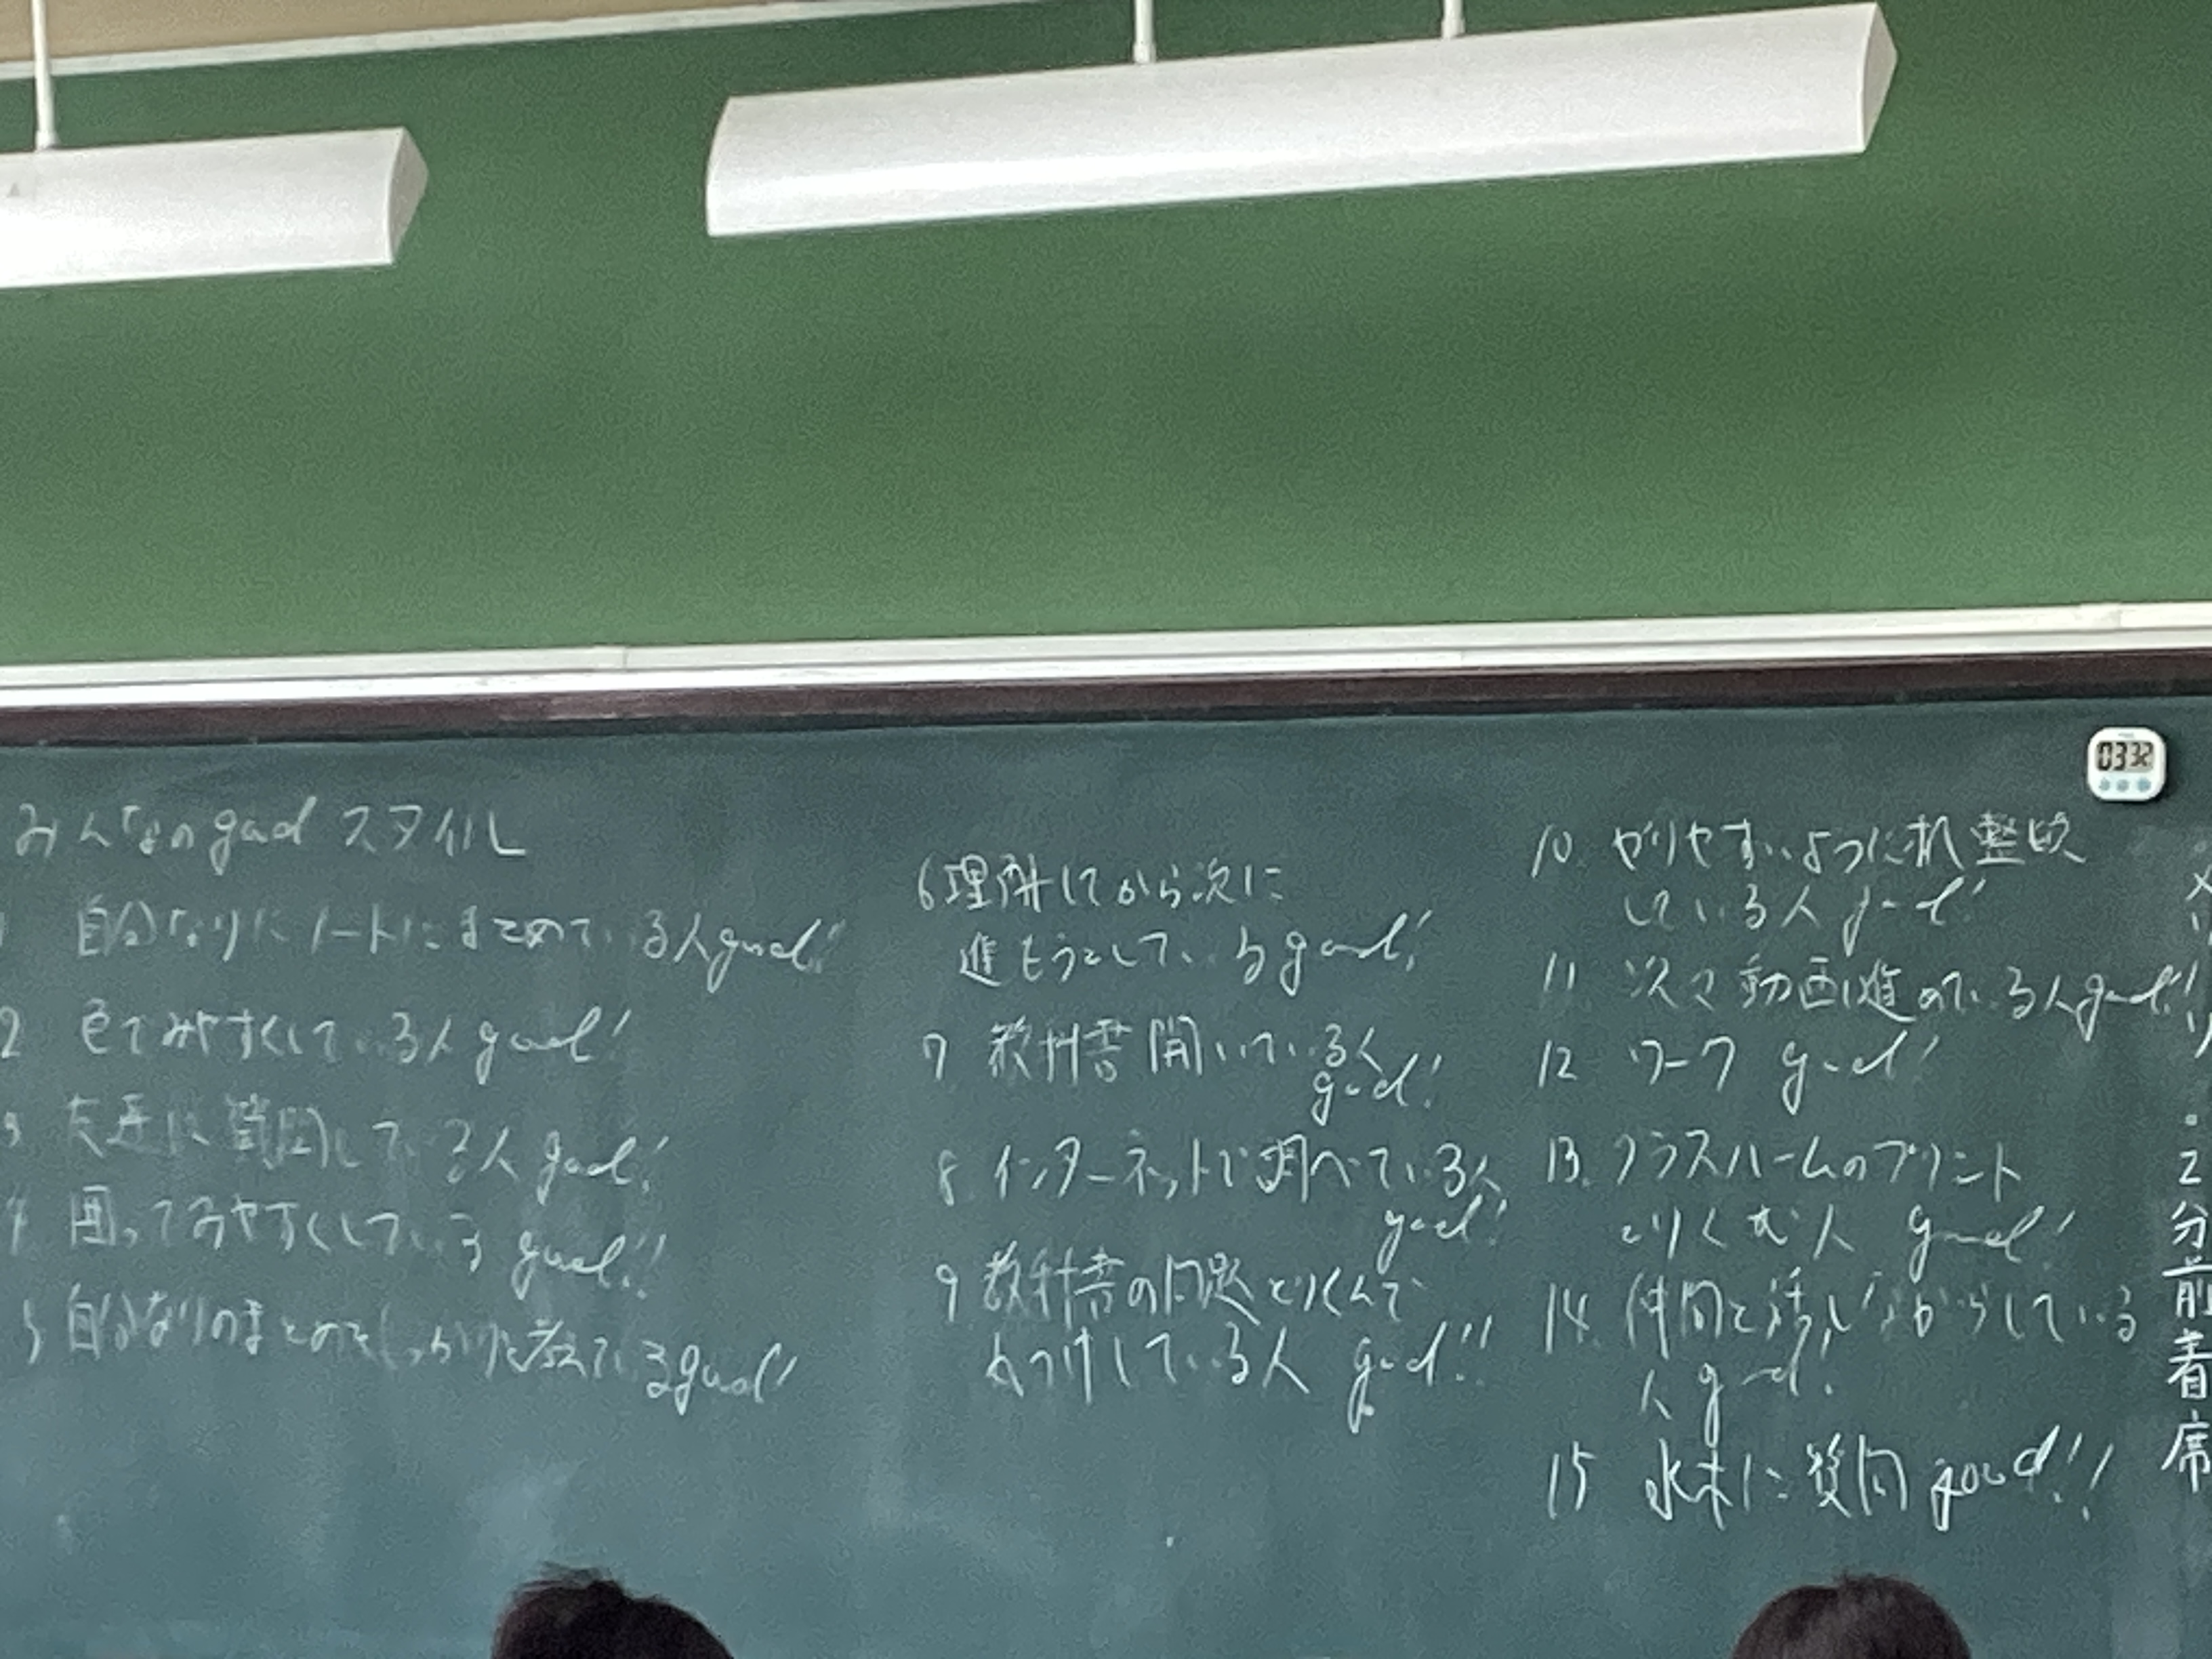 みんなのgoodスタイル
1 自分なりにノートにまとめている人good!!
2 色でみやすくしている人good!
3 友達に質問している人good!
4 囲ってみやすくしているgood!!
5 自分なりのまとめをしっかりと考えているgood!
6 理解してから次に
進もうとしているgood!
7 教科書開いている人
good!
8. インターネットで調べている人
good!
9 教科書の問題とりくんで
丸つけしている人 good!!
10. やりやすいように机整頓
している人 good!
11. 次々動画進めている人good!!
12 ワーク good!
13. クラスルームのプリント
とりくむ人 good!
14. 仲間と話しながらしている
人 good!
15 水木に質問good!!
03 32
メリハリ
。2分前着席